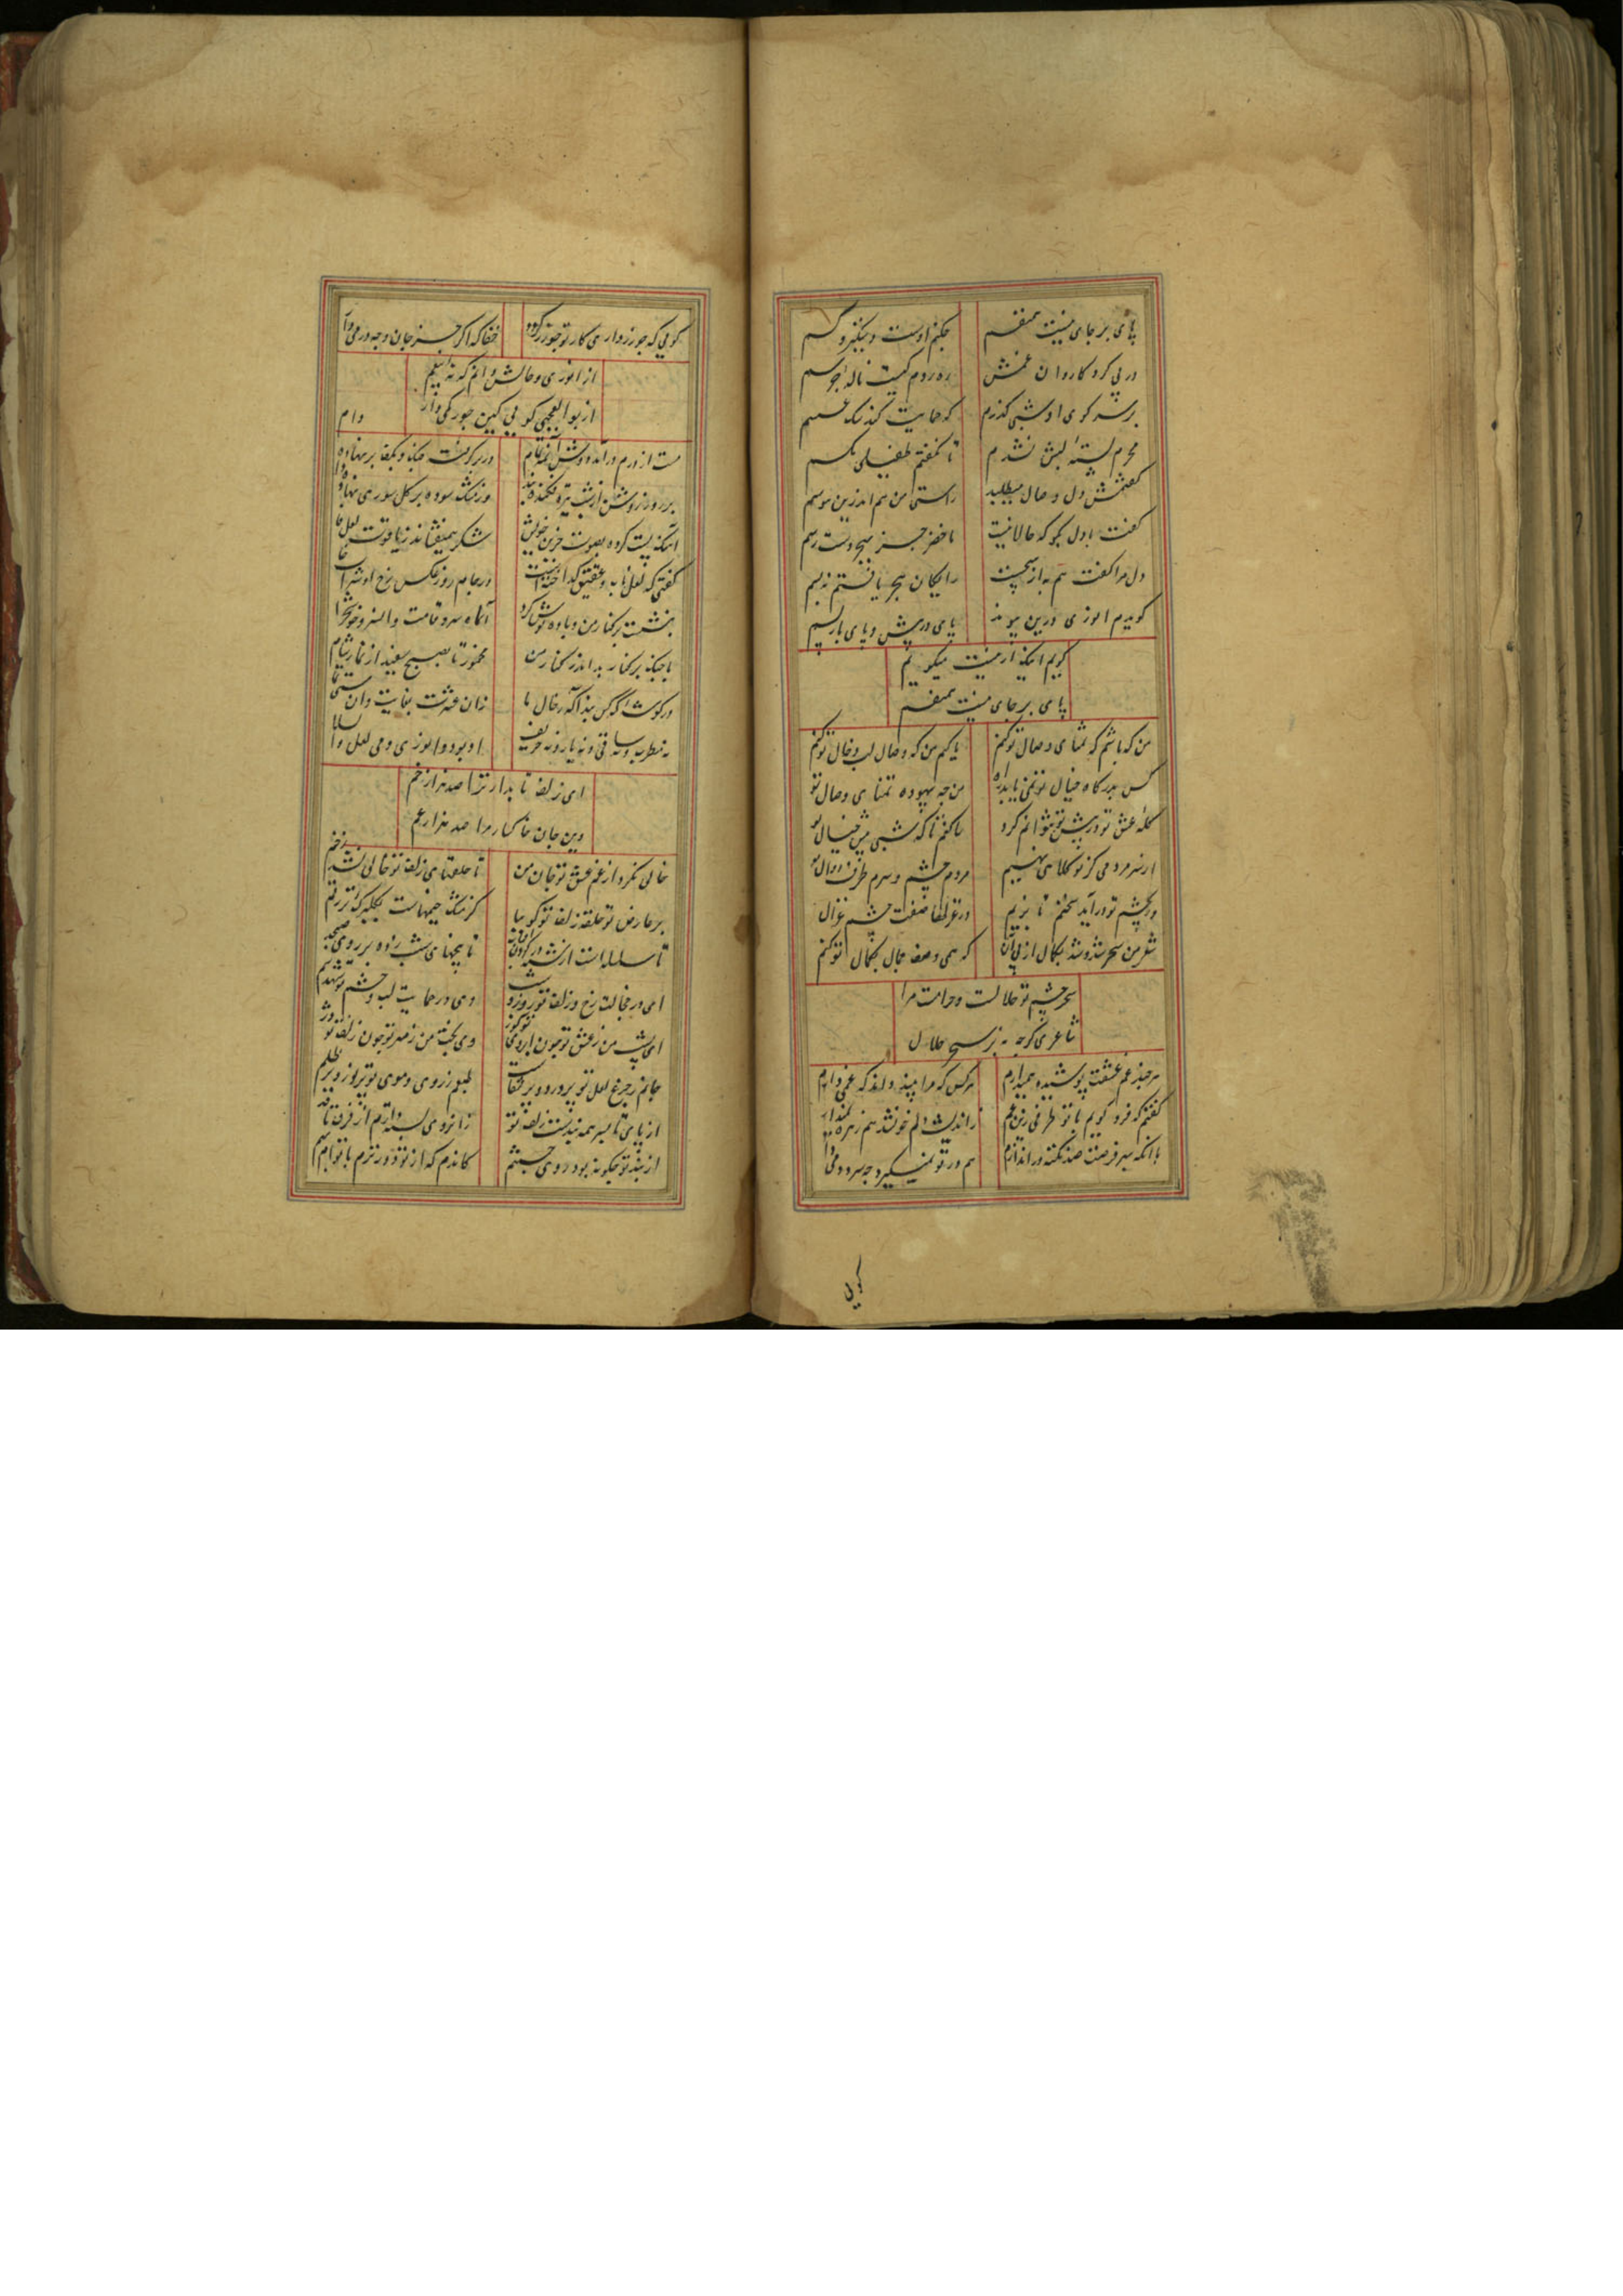 پای بر جای نیست همنفسم
چکنم اوست دستگیر و کسم
در پی گرد کاروان غمش
ره روم کیست ناله جرسم
بر سر کوی او شبی گذرم
که حمایت کند سگ عسسم
محرم پسته لبش نشدم
تا نگفتم طفیلی مگسم
گفتمش دل وصال میطلبد
راستی من هم اندرین هوسم
گفت با دل بگو که حالا نیست
ماحضر جز بهجر دست رسم
دل مرا گفت هم به از هیچست
رایگان هجر یافتم نه بسم
گویدم انوری درین پیوند
پای در پیش و پای باز پسم
گویم اینک ازینت میگویم
پای بر جای نیست همنفسم
من که باشم که تمنای وصال تو کنم
یا کیم من که وصال لب و خال تو کنم
کس بدرگاه خیال تو نمی یابد راه
من چه بیهوده تمنای وصال تو
گله عشق تو در پیش تو نتوانم کرد
ساکنم تا که شبی پیش خیال تو
از سر مردمی گر تو کلاهی نهیم
مردم چشم و سرم ظرف دوال تو
ور بچشم تو درآید سخنم تا بزیم
در غزلها صفت چشم غزال
شعر من سحر شد و شد بکمال از پی آن
که همی وصف جمال بکمال تو کنم
سحر چشم تو حلالست و حرامست مرا
شاعری گرچه نه بر سحر حلال
هرچند غم عشقت پوشیده همیدارم
هر کس که مرا بیند داند که غمی دارم
گفتم که فرو گویم با تو طرفی زین غم
زاندیشه دلم خون شد هم زهره نمیدارم
با آنکه بهر فرصت صد نکته در اندازم
هم در تو نمیگیرد چه سرد دمی دارم
گویی
گویی که چو زر داری کار تو چو زر گردد
حقا که اگر جز جان وجه درمی دارم
از انوری و حالش دانم که نه آیعم
از بوالعجبی گویی کین جور کمی دارم
مست از درم درآمد دوش آن مه تمام
در بر گرفته چنگ و بکف برنهاده جام
بر روز روشن از شب تیره فکنده بند
وز مشک سوده بر گل سوری نهاده دام
آهنگ پست کرده بصوت حزین خویش
شکر همیفشاند ز یاقوت لعل فام
گفتی که لعل ناب و عقیق گداختست
در جام روز عکس رخ او شراب خام
بنشست بر کنار من و باده نوش کرد
آن ماه سرو قامت و آن سرو خوشخرام
با چنگ بر کنار بد اندر کنار من
مخمور تا بصبح سفید از نماز شام
در گوشه که کس نبد آگه ز حال ما
زان عشرت بغایت و آن مستی
نه مطرب و نه ساقی و نه یار و نه حریف
او بود و انوری و می لعل والسلام
ای زلف تابدار ترا صد هزار خم
وین جان خاکسار مرا صد هزار غم
خالی نگردد از غم عشق تو جان من
تا حلقهای زلف تو خالی نشد ز خم
بر عارض تو حلقه زلف تو گوییا
کز مشک جیمهاست بگلبرگ تر رقم
تا سلسله است
تا پنجهای شب زده بر روی صبحدم
ای در خجالت رخ و زلف تو روز و شب
وی در حمایت لب و چشم تو شهد و سم
ای پشت من ز عشق تو چون ابروی تو کوژ
وی بخت من ز مهر تو چون زلف تو دژم
جانم ز جزع لعل تو پر درد و پر جفاست
طبعم ز روی و موی تو پر نور و پر ظلم
از پای تا بسر همه بندست زلف تو
زانروی بسته دارم از فرق تا قدم
از بند تو چگونه بود روی جستنم
کاندم که از تو دورترم با تو ام بهم